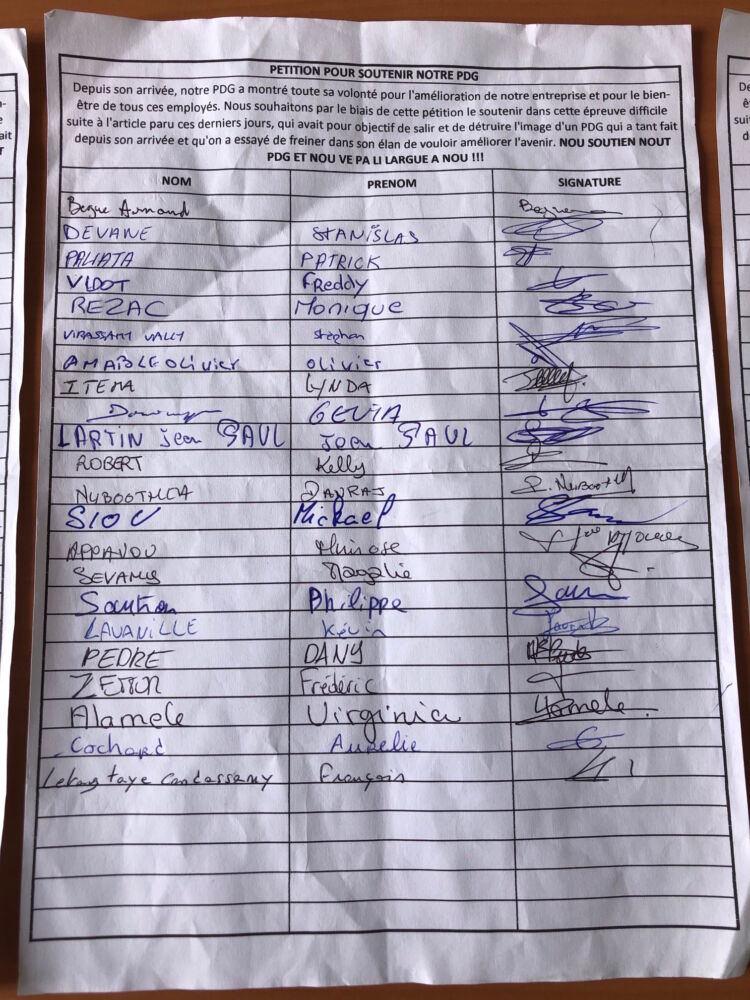 PETITION POUR SOUTENIR NOTRE PDG
Depuis son arrivée, notre PDG a montré toute sa volonté pour l'amélioration de notre entreprise et pour le bien-
être de tous ces employés. Nous souhaitons par le biais de cette pétition le soutenir dans cette épreuve difficile
suite à l'article paru ces derniers jours, qui avait pour objectif de salir et de détruire l'image d'un PDG qui a tant fait
depuis son arrivée et qu'on a essayé de freiner dans son élan de vouloir améliorer l'avenir. NOU SOUTIEN NOUT
PDG ET NOU VE PA LI LARGUE A NOU !!!
NOM PRENOM SIGNATURE
Begue Armand Begue
DEVANE STANISLAS
PALIATA PATRICK
VIDOT Freddy
REZAC Monique
VIRASSAMY VALLY Stephan
AMAIBLE OLIVIER OLIVIER
ITEMA LYNDA
GEVIA
LARTIN Jean GAUL Jean GAUL
ROBERT Kelly
NUBOOTHEA DANRAJ
SIOU Michael
APPAVOU
SEVAMY Magalie
Sautron Philippe
LAVANILLE Kévin
PEDRE DANY
ZETTOR Frédéric
Alamele Virginia Alamele
Cochard Aurelie
Lebon taye Candassamy François